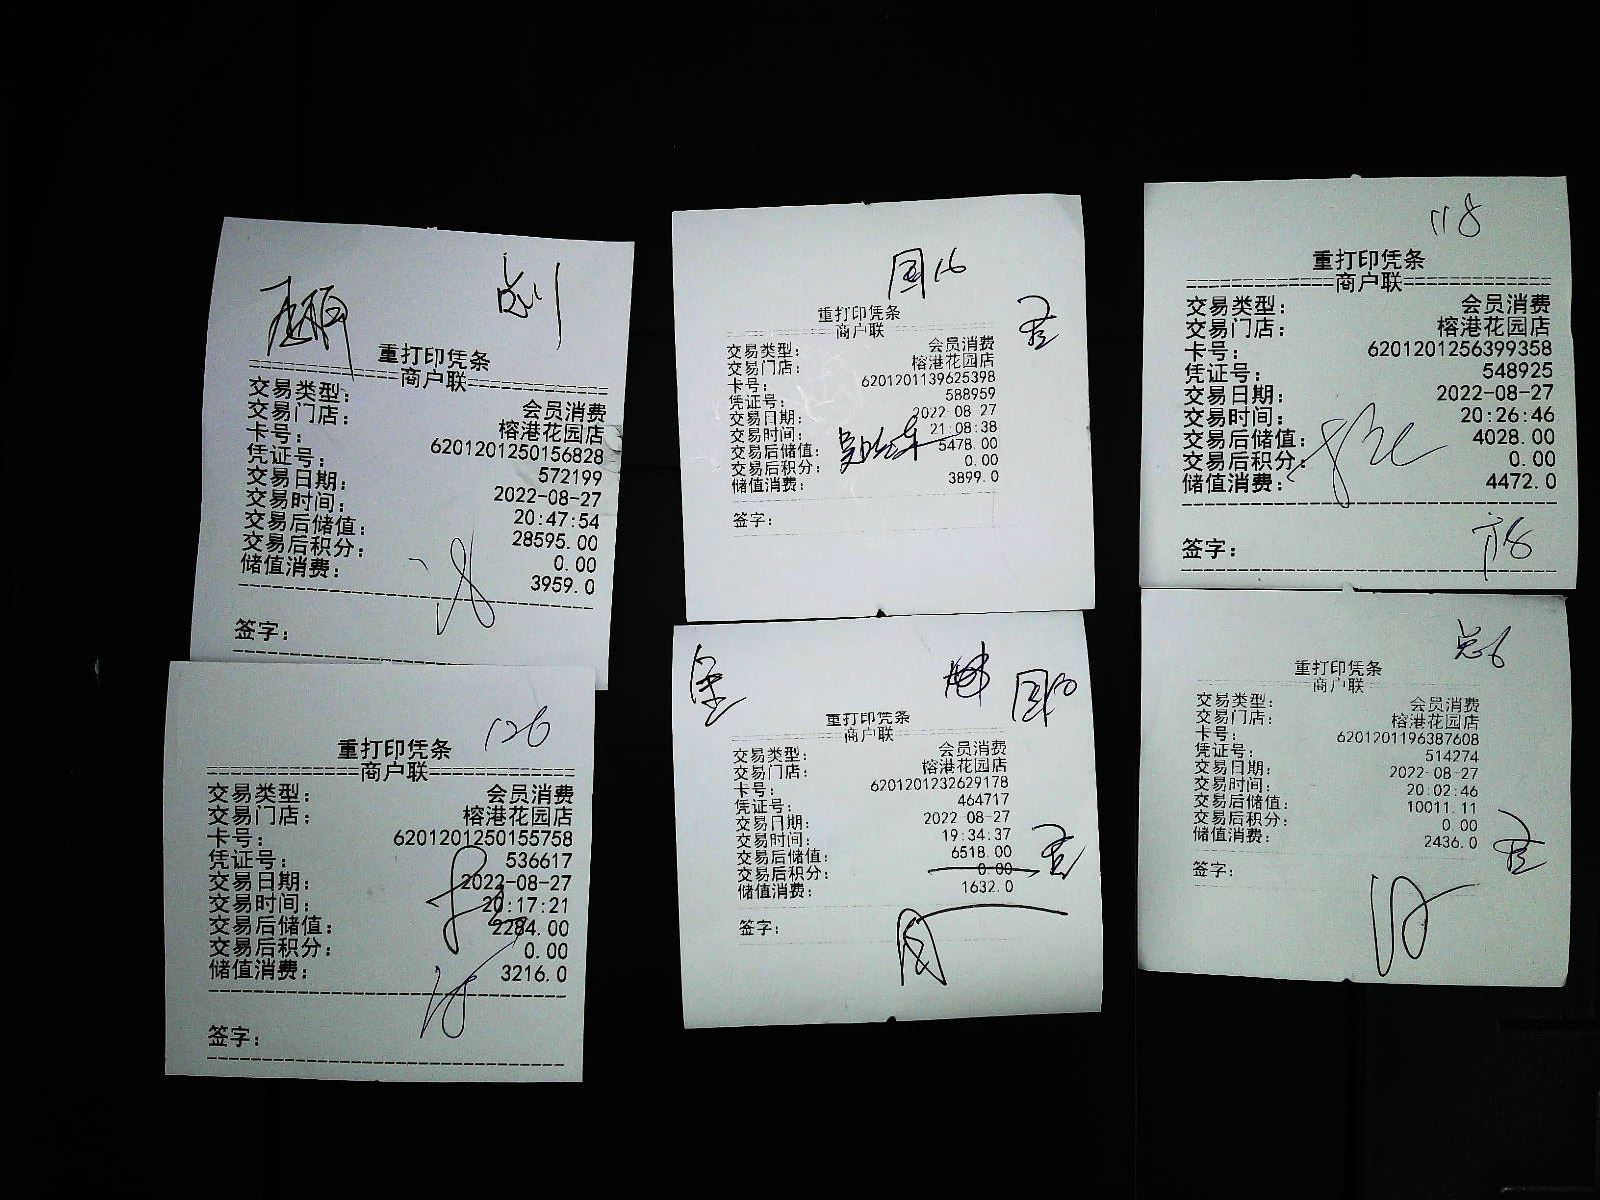 重打印凭条
商户联
交易类型： 会员消费
交易门店： 榕港花园店
卡号： 6201201250156828
凭证号： 572199
交易日期： 2022-08-27
交易时间： 20:47:54
交易后储值： 28595.00
交易后积分： 0.00
储值消费： 3959.0
签字：
国16
重打印凭条
商户联
交易类型： 会员消费
交易门店： 榕港花园店
卡号： 6201201139625398
凭证号： 588959
交易日期： 2022-08-27
交易时间： 21:08:38
交易后储值： 5478.00
交易后积分： 0.00
储值消费： 3899.0
签字：
118
重打印凭条
商户联
交易类型： 会员消费
交易门店： 榕港花园店
卡号： 6201201256399358
凭证号： 548925
交易日期： 2022-08-27
交易时间： 20:26:46
交易后储值： 4028.00
交易后积分： 0.00
储值消费： 4472.0
签字：
126
重打印凭条
商户联
交易类型： 会员消费
交易门店： 榕港花园店
卡号： 6201201250155758
凭证号： 536617
交易日期： 2022-08-27
交易时间： 20:17:21
交易后储值： 2284.00
交易后积分： 0.00
储值消费： 3216.0
签字：
重打印凭条
商户联
交易类型： 会员消费
交易门店： 榕港花园店
卡号： 6201201232629178
凭证号： 464717
交易日期： 2022-08-27
交易时间： 19:34:37
交易后储值： 6518.00
交易后积分： 0.00
储值消费： 1632.0
签字：
总6
重打印凭条
商户联
交易类型： 会员消费
交易门店： 榕港花园店
卡号： 6201201196387608
凭证号： 514274
交易日期： 2022-08-27
交易时间： 20:02:46
交易后储值： 10011.11
交易后积分： 0.00
储值消费： 2436.0
签字：